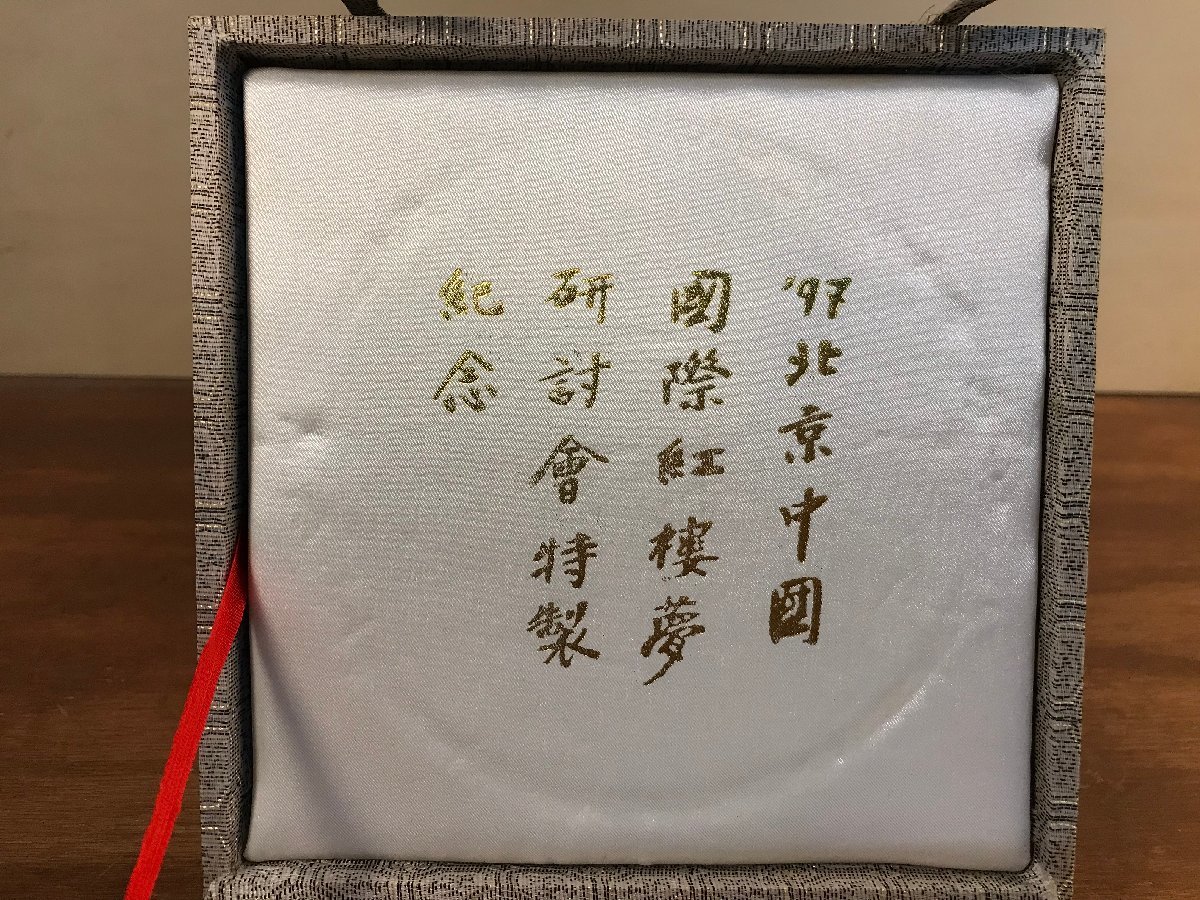 '97北京中國
國際紅樓夢
研討會特製
紀念